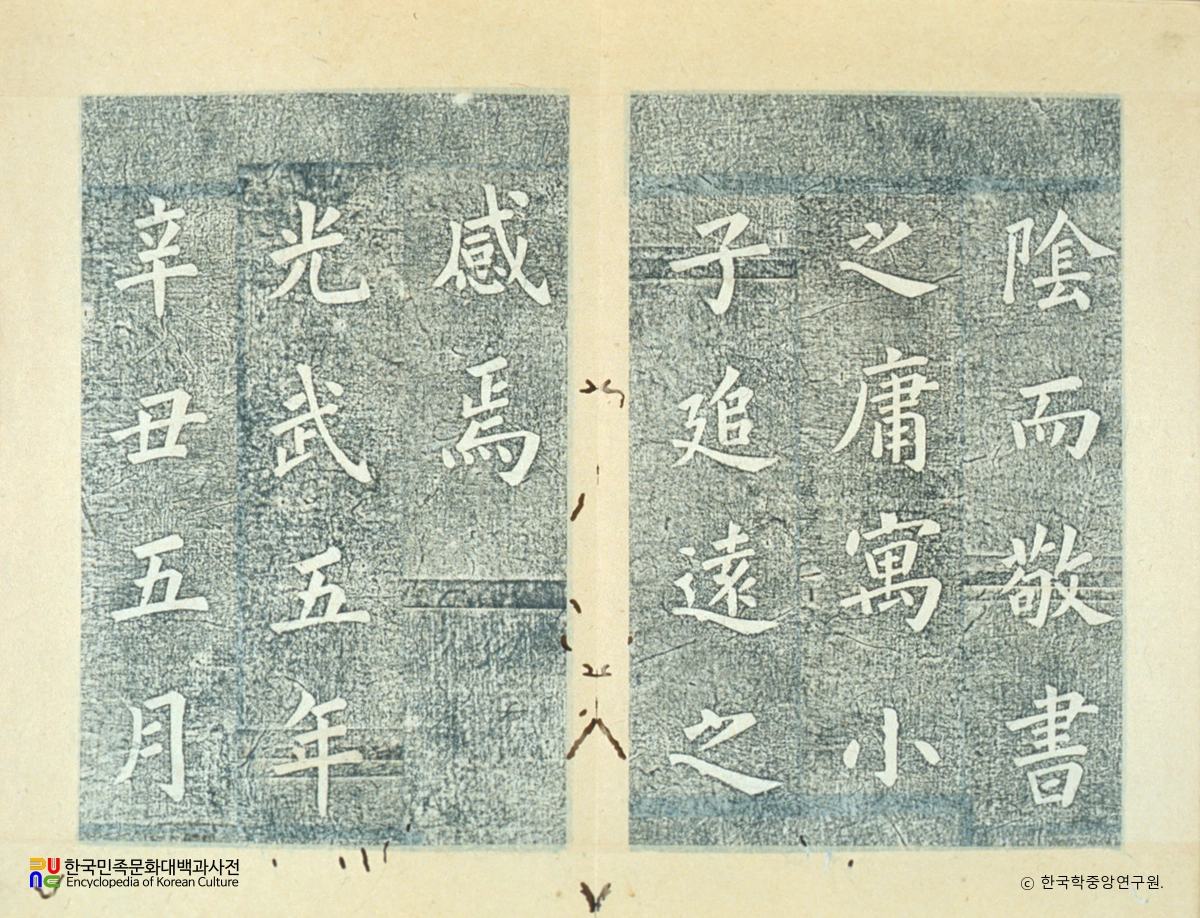 陰而敬書
之庸寓小
子追遠之
感焉
光武五年
辛丑五月
한국민족문화대백과사전
Encyclopedia of Korean Culture
© 한국학중앙연구원.